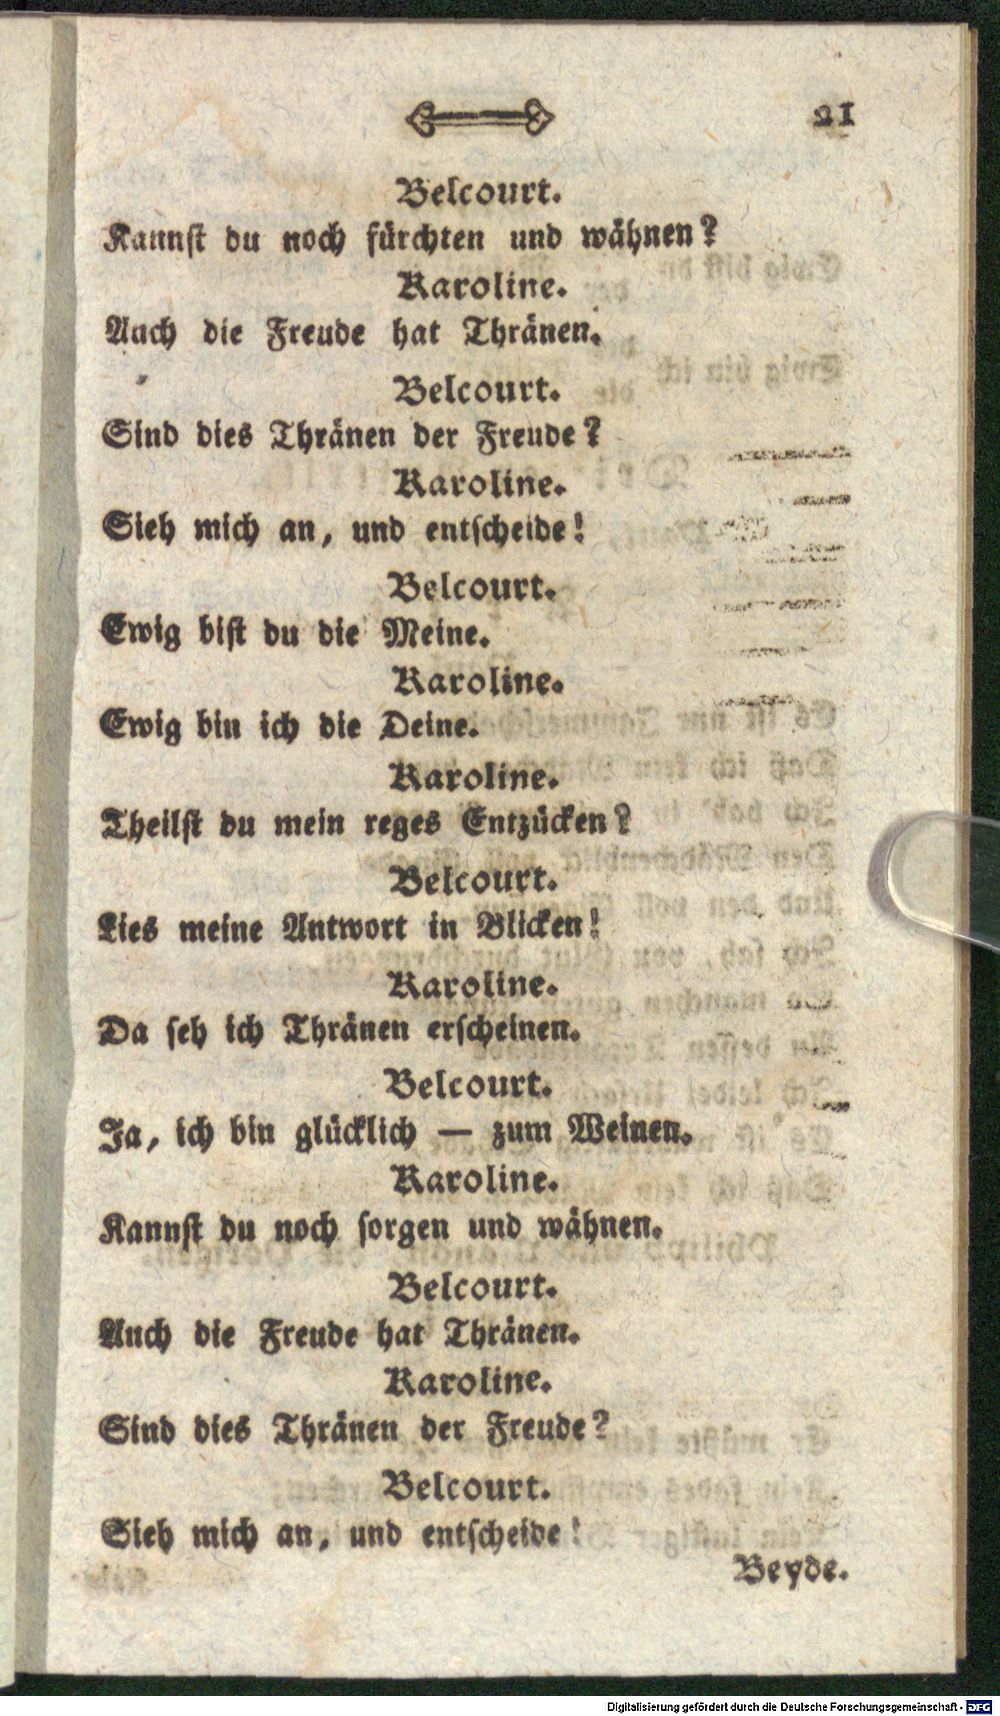 21
Belcourt.
Kannst du noch fürchten und wähnen?
Karoline.
Auch die Freude hat Thränen.
Belcourt.
Sind dies Thränen der Freude?
Karoline.
Sieh mich an, und entscheide!
Belcourt.
Ewig bist du die Meine.
Karoline.
Ewig bin ich die Deine.
Karoline.
Theilst du mein reges Entzücken?
Belcourt.
Lies meine Antwort in Blicken!
Karoline.
Da seh ich Thränen erscheinen.
Belcourt.
Ja, ich bin glücklich — zum Weinen.
Karoline.
Kannst du noch sorgen und wähnen.
Belcourt.
Auch die Freude hat Thränen.
Karoline.
Sind dies Thränen der Freude?
Belcourt.
Sieh mich an, und entscheide!
Beyde.
Digitalisierung gefördert durch die Deutsche Forschungsgemeinschaft - DFG